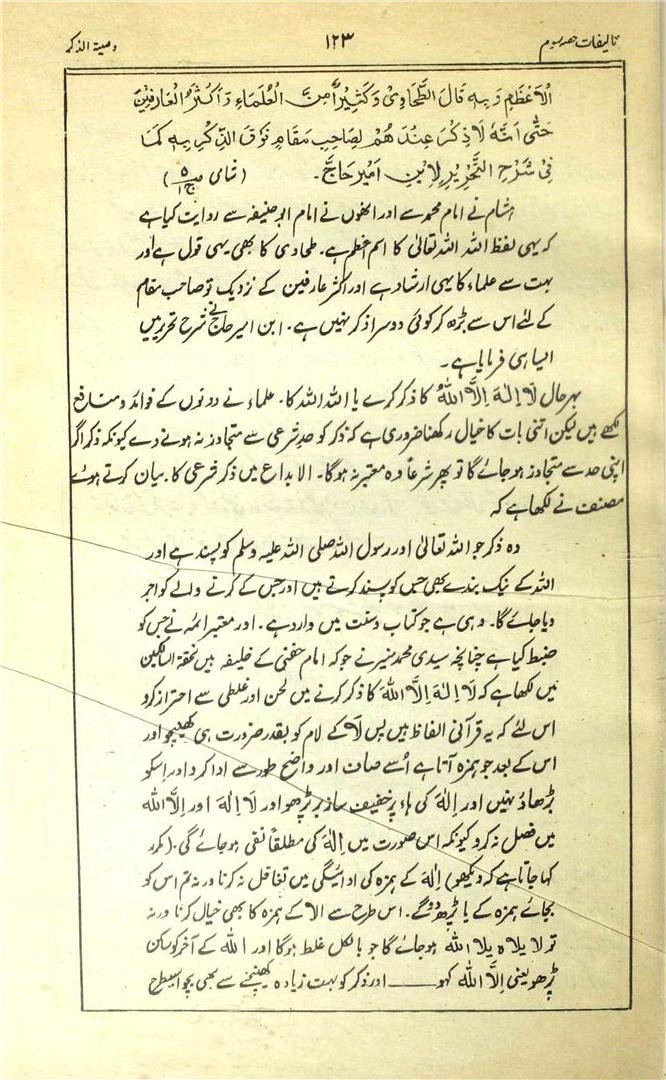 تالیفات حصہ سوم ۱۲۳ وصیۃ الذکر
الْاَعْظَمِ وَبِهٖ قَالَ الطَّحَاوِیُّ وَکَثِیْرٌ مِنَ الْعُلَمَاءِ وَاَکْثَرُ الْعَارِفِیْنَ
حَتّٰی اَنَّهٗ لَا ذِکْرَ عِنْدَهُمْ لِصَاحِبِ مَقَامٍ فَوْقَ الذِّکْرِ بِهٖ کَمَا
فِیْ شَرْحِ التَّحْرِیْرِ لِاِبْنِ اَمِیْرِ حَاجٍّ۔ (شامی ص۵ ج۱)
ہشام نے امام محمد سے اور انھوں نے امام ابو حنیفہ سے روایت کیا ہے
کہ یہی لفظ اللہ اللہ تعالیٰ کا اسم اعظم ہے۔ طحاوی کا بھی یہی قول ہے اور
بہت سے علماء کا یہی ارشاد ہے اور اکثر عارفین کے نزدیک تو صاحب مقام
کے لئے اس سے بڑھ کر کوئی دوسرا ذکر نہیں ہے۔ ابن امیر حاج نے شرح تحریر میں
ایسا ہی فرمایا ہے۔
بہر حال لَا اِلٰہَ اِلَّا اللّٰہُ کا ذکر کرے یا اللہ اللہ کا۔ علماء نے دونوں کے فوائد و منافع
لکھے ہیں لیکن اتنی بات کا خیال رکھنا ضروری ہے کہ ذکر کو حد شرعی سے متجاوز نہ ہونے دے کیونکہ ذکر اگر
اپنی حد سے متجاوز ہو جائے گا تو پھر شرعاً وہ معتبر نہ ہوگا۔ الابداع میں ذکر شرعی کا بیان کرتے ہوئے
مصنف نے لکھا ہے کہ
وہ ذکر جو اللہ تعالیٰ اور رسول اللہ صلی اللہ علیہ وسلم کو پسند ہے اور
اللہ کے نیک بندے بھی جس کو پسند کرتے ہیں اور جس کے کرنے والے کو اجر
دیا جائے گا۔ وہی ہے جو کتاب و سنت میں وارد ہے۔ اور معتبر ائمہ نے جس کو
ضبط کیا ہے چنانچہ سیدی محمد منیر نے جو کہ امام حفنی کے خلیفہ ہیں تحفۃ السالکین
میں لکھا ہے کہ لَا اِلٰہَ اِلَّا اللّٰہ کا ذکر کرنے میں لحن اور غلطی سے احتراز کرو
اس لئے کہ یہ قرآنی الفاظ ہیں پس لَا کے لام کو بقدر ضرورت ہی کھینچو اور
اس کے بعد جو ہمزہ آتا ہے اُسے صاف اور واضح طور سے ادا کرو اور اسکو
بڑھاؤ نہیں اور اِلٰہَ کی ہاء پر خفیف سا زبر پڑھو اور لَا اِلٰہَ اور اِلَّا اللّٰہ
میں فصل نہ کرو کیونکہ اس صورت میں اِلٰہَ کی مطلقاً نفی ہو جائے گی۔ (مکرر
کہا جاتا ہے کہ دیکھو) اِلٰہَ کے ہمزہ کی ادائیگی میں تغافل نہ کرنا ورنہ تم اس کو
بجائے ہمزہ کے یا پڑھو گے۔ اس طرح سے الا کے ہمزہ کا بھی خیال کرنا ورنہ
تو لا یلاہ یلا اللہ ہو جائے گا جو بالکل غلط ہوگا اور اللہ کے آخر کو ساکن
پڑھو یعنی اِلَّا اللّٰہ کہو ــــــ اور ذکر کو بہت زیادہ کھینچنے سے بھی بچو اسیطرح